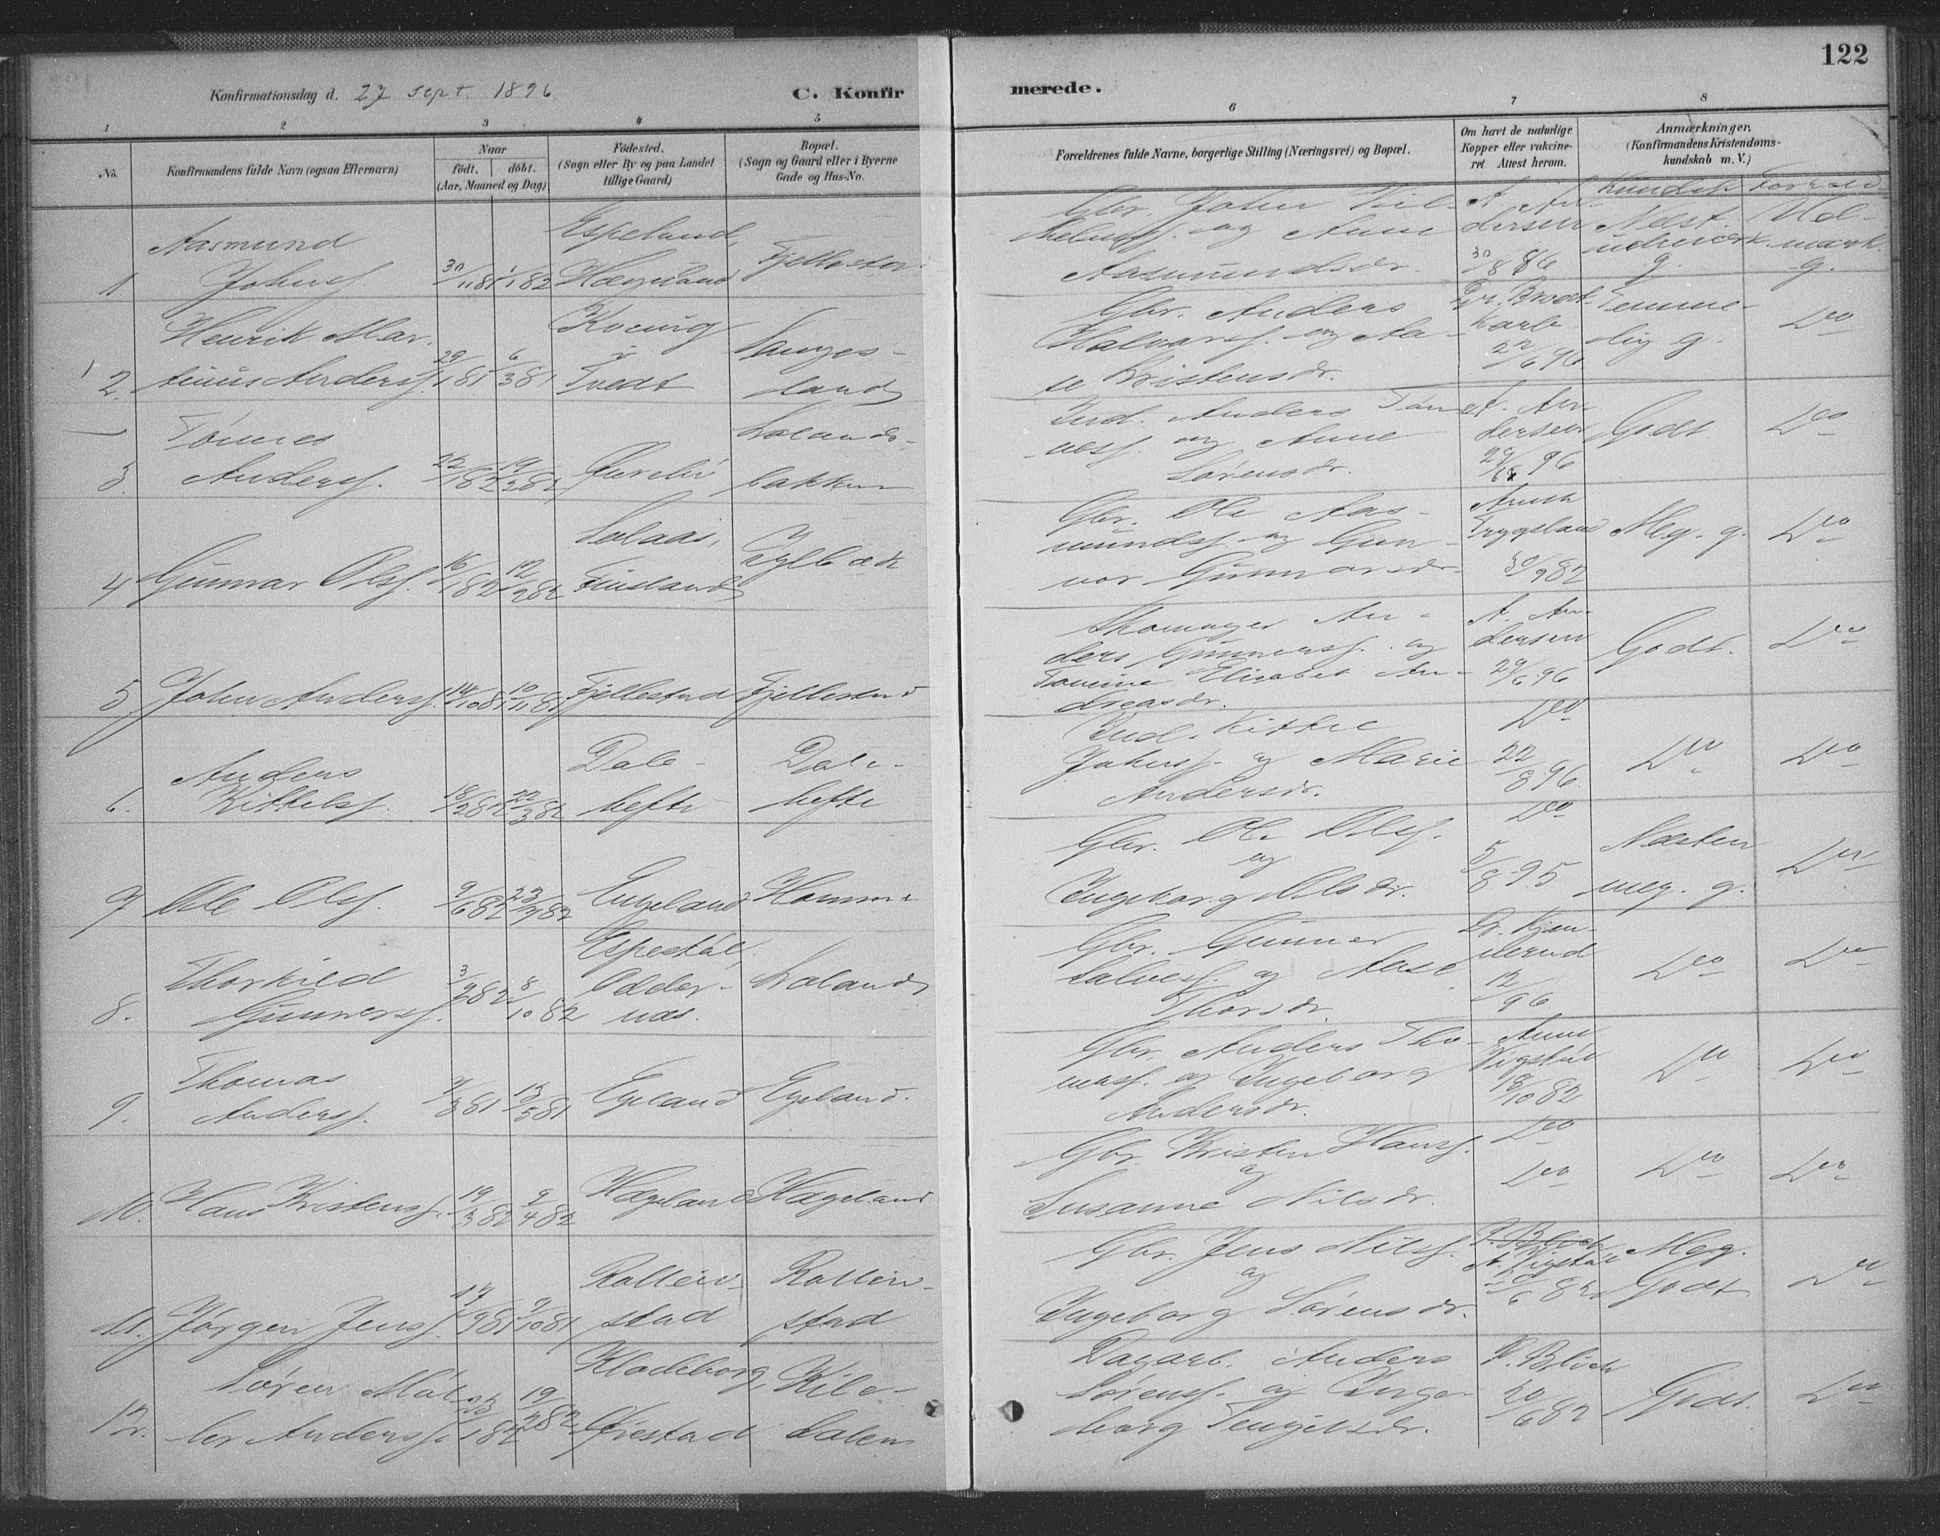 122
Konfirmationsdag d. 27 sept. 1896.
C. Konfir
merede.
1 2 3 4 5 6 7 8
No.
Konfirmandens fulde Navn (ogsaa Efternavn)
Naar
födt. döbt.
(Aar, Maaned og Dag)
Födested.
(Sogn eller By og paa Landet
tillige Gaard)
Bopæl.
(Sogn og Gaard eller i Byerne
Gade og Hus-No.
Forældrenes fulde Navne, borgerlige Stilling (Næringsvei) og Bopæl.
Om havt de naturlige
Kopper eller vakcine-
ret. Attest herom.
Anmærkninger.
(Konfirmandens Kristendoms-
kundskab m. V.)
1. Aasmund
Johnsf.
30/11 81 1/1 82
Espeland,
Hægeland
Fjellestad
Gbr. John Vil-
helmsf. og Anne
Aasmundsdr.
A. An-
dersen
30/8 86
Kundsk.
Næst.
udmærk.
g.
Forhold
Ud-
mærk.
g.
2. Henrik Mar-
tinus Andersf.
29/1 81 6/3 81
Kvenig
Tvedt
Langes-
land
Gbr. Anders
Halvorsf. og Aa-
se Kristensdr.
Dr.
22/6 96
Temme-
lig g.
Do
3. Tønnes
Andersf.
Lolands-
bakken
Ind. Anders Tøn-
nesf. og Anne
Sørensdr.
A. An-
dersen
Godt
Do
4 Gunnar Olsf.
16/1 82 12/2 82
Finsland
Kylbæk
Gbr. Ole Aas-
mundsf. og Gun-
vor Gunnarsdr.
Trygsland
30/9 82
Meg. g.
Do
5. John Andersf.
14/10 81 10/11 81
Fjellestad
Fjellestad
Skomager An-
ders Gunnersf. og
Tomine Elisabet An-
dreasdr.
A. An-
dersen
29/6 96
Godt.
Do
6. Anders
Kittelsf.
18/2 82 22/3 82
Dale-
hefte
Dale-
hefte
Ind. Kittel
Johnsf. og Marie
Andersdr.
Do
22/8 96
Do
Do
7 Ole Olsf.
9/6 82 23/7 82
Engeland
Homme
Gbr. Ole Olsf.
og
Ingeborg Olsdr.
Do
5/8 95
Næsten
meg. g.
Do
8. Thorkild
Gunnersf.
3/9 82 8/10 82
Espestøl,
Odder-
næs.
Loland
Gbr. Gunner
Salvesf. og Aase
Thorsdr.
Dr. Kjen-
nerud
12/ 96
Do
Do
9. Thomas
Andersf.
13/5 81
Egeland
Egeland.
Gbr. Anders Tho-
masf. og Ingeborg
Andersdr.
Anne
Vigstøl
18/10 82
Do
Do
10. Hans Kristensf.
19/3 82 9/4 82
Hægeland
Hægeland
Gbr. Kristen Hansf.
og
Susanne Nilsdr.
Do
Do
Do
Do
11. Jørgen Jensf.
17/9 81 9/10 81
Rollein-
stad
Rollein-
stad
Gbr. Jens Nilsf.
og
Ingeborg Sørensdr.
P. Blich
A. Vigstøl
Meg.
Godt
Do
12. Søren Møl-
ler Andersf.
23/1 82 19/2 82
Kladeborg,
Øiestad
Kile-
dalen
Dagarb. Anders
Sørensf. og Inge-
borg Tengelsdr.
P. Blich
20/6 82
Godt.
Do